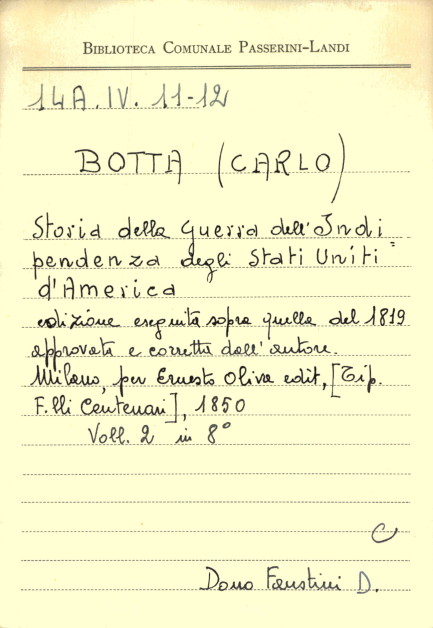 BIBLIOTECA COMUNALE PASSERINI-LANDI
14A. IV. 11-12
BOTTA (CARLO)
Storia della Guerra dell'Indi=
pendenza degli Stati Uniti
d'America
edizione eseguita sopra quella del 1819
approvata e corretta dall'autore.
Milano, per Ernesto Oliva edit, [Tip.
F.lli Centenari], 1850
Voll. 2 in 8°
C
Dono Faustini D.